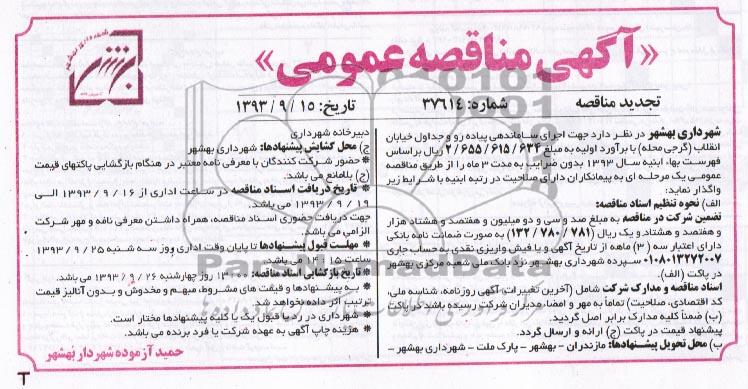 «آگهی مناقصه عمومی»
تجدید مناقصه
شماره: ۳۷۶۱۴
تاریخ: ۱۵ / ۹ / ۱۳۹۳
شهرداری بهشهر در نظر دارد جهت اجرای ساماندهی پیاده رو و جداول خیابان
انقلاب (گرجی محله) با برآورد اولیه به مبلغ ۶۳۴ / ۶۱۵ / ۶۵۵ / ۲ ریال براساس
فهرست بها، ابنیه سال ۱۳۹۳ بدون ضرایب به مدت ۳ ماه را از طریق مناقصه
عمومی یک مرحله ای به پیمانکاران دارای صلاحیت در رتبه ابنیه با شرایط زیر
واگذار نماید:
الف) نحوه تنظیم اسناد مناقصه:
تضمین شرکت در مناقصه به مبلغ صد و سی و دو میلیون و هفتصد و هشتاد هزار
و هفتصد و هشتاد و یک ریال (۷۸۱ / ۷۸۰ / ۱۳۲) به صورت ضمانت نامه بانکی
دارای اعتبار سه (۳) ماهه از تاریخ آگهی و یا فیش واریزی نقدی به حساب جاری
۰۱۰۸۰۱۳۲۷۲۰۰۷ سپرده شهرداری بهشهر نزد بانک ملی شعبه مرکزی بهشهر
در پاکت (الف).
اسناد مناقصه و مدارک شرکت شامل (آخرین تغییرات، آگهی روزنامه، شناسه ملی،
کد اقتصادی، صلاحیت) تماما به مهر و امضاء مدیران شرکت رسیده باشد در پاکت
(ب) ضمناً کلیه مدارک برابر اصل گردید.
پیشنهاد قیمت در پاکت (ج) ارائه و ارسال گردد.
ب) محل تحویل پیشنهادها: مازندران - بهشهر - پارک ملت - شهرداری بهشهر -
دبیرخانه شهرداری
ج) محل گشایش پیشنهادها: شهرداری بهشهر
* حضور شرکت کنندگان با معرفی نامه معتبر در هنگام بازگشایی پاکتهای قیمت
(ج) بلامانع می باشد.
* تاریخ دریافت اسناد مناقصه در ساعت اداری از ۱۶ / ۹ / ۱۳۹۳ الی
۱۹ / ۹ / ۱۳۹۳ می باشد.
جهت دریافت حضوری اسناد مناقصه، همراه داشتن معرفی نامه و مهر شرکت
الزامی می باشد.
* مهلت قبول پیشنهادها تا پایان وقت اداری روز سه شنبه ۲۵ / ۹ / ۱۳۹۳
ساعت ۱۵ : ۱۴ می باشد.
* تاریخ بازگشایی اسناد مناقصه: ۰۰ : ۱۳ روز چهارشنبه ۲۶ / ۹ / ۱۳۹۳ می باشد.
* به پیشنهادها و قیمت های مشروط، مبهم و مخدوش و بدون آنالیز قیمت
ترتیب اثر داده نخواهد شد.
* شهرداری در رد یا قبول یک یا کلیه پیشنهادها مختار است.
* هزینه چاپ آگهی به عهده شرکت یا فرد برنده می باشد.
حمید آزموده شهردار بهشهر